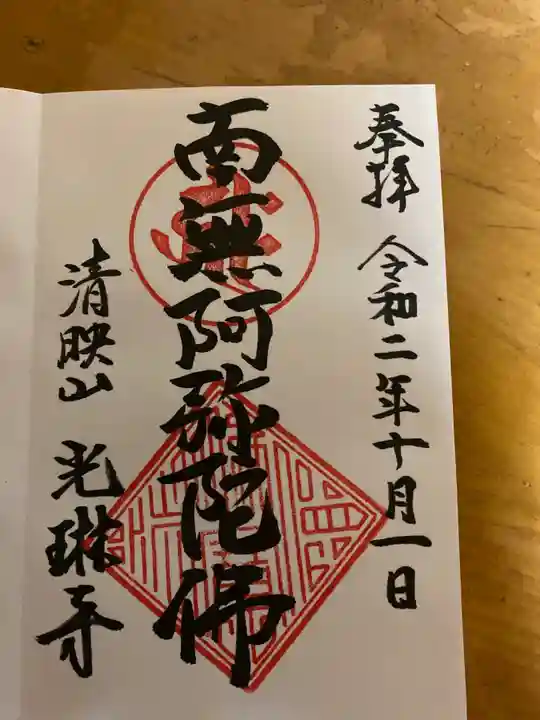 奉拝 令和二年十月一日
南無阿弥陀佛
清映山 光琳寺